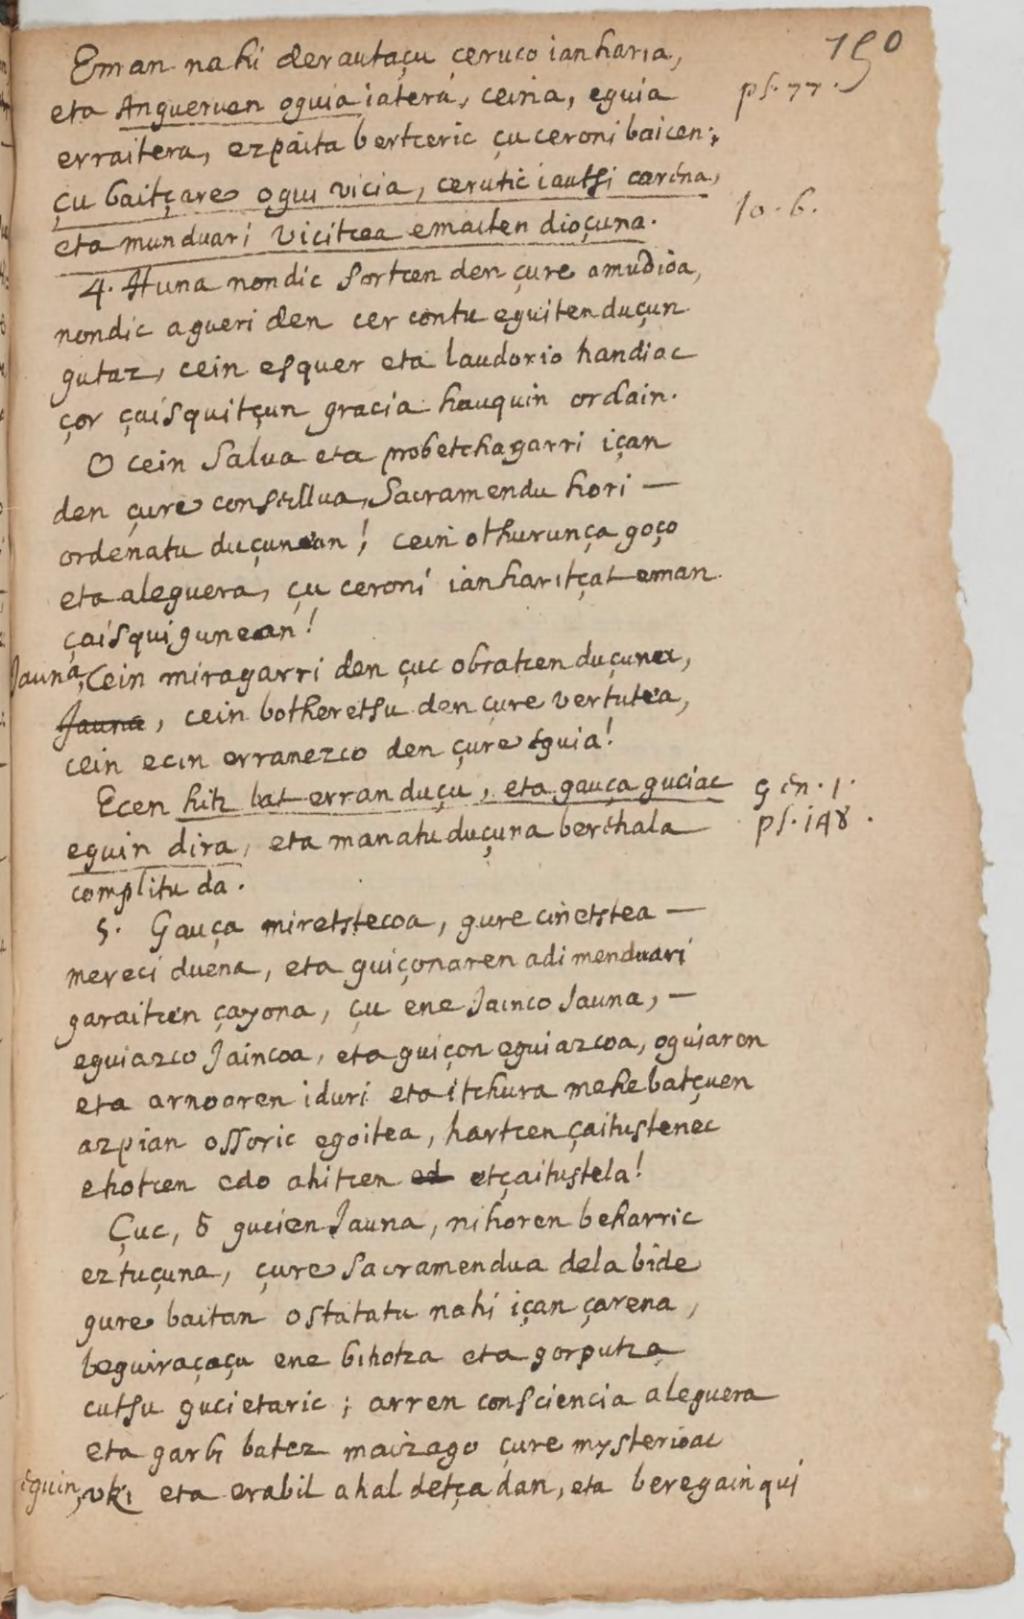 150
Eman nahi derautaçu ceruco ianharia,
eta Angueruen oguia iatera, ceina, eguia
ps. 77.
erraitera, ezpaita bertceric çu ceroni baicen;
çu baitçare ogui vicia, cerutic iautsi carena,
Io. 6.
eta munduari vicitcea emaiten dioçuna.
4. Huna nondic sortcen den çure amudioa,
nondic agueri den cer contu eguiten duçun
gutaz, cein esquer eta laudorio handiac
çor çaisquitçun gracia hauquin ordain.
O cein salua eta probetchagarri içan
den çure conseillua, Sacramendu hori —
ordenatu duçunean! cein othurunça goço
eta aleguera, çu ceroni ianharitçat eman
çaisquigunean!
Jauna, Cein miragarri den çuc obratcen duçuna,
Jauna, cein botheretsu den çure vertutea,
cein ecin erranezco den çure eguia!
Ecen hitz bat erran duçu, eta gauça guciac
Gen. 1.
eguin dira, eta manatu duçuna berehala
ps. 148.
complitu da.
5. Gauça miretstecoa, gure cinetstea —
mereci duena, eta guiçonaren adimenduari
garaitcen çayona, çu ene Jainco Jauna, —
eguiazco Jaincoa, eta guiçon eguiazcoa, oguiaren
eta arnoaren iduri eta itchura mehe batçuen
azpian ossoric egoitea, hartcen çaitustenec
ehotcen edo ahitcen ed etçaitustela!
Çuc, ô gucien Jauna, nihoren beharric
eztuçuna, çure Sacramendua dela bide
gure baitan ostatatu nahi içan çarena,
beguiraçaçu ene bihotza eta gorputza
cutsu gucietaric; arren consciencia aleguera
eta garbi batez maizago çure mysterioac
eguin, vki eta erabil ahal detçadan, eta beregainqui